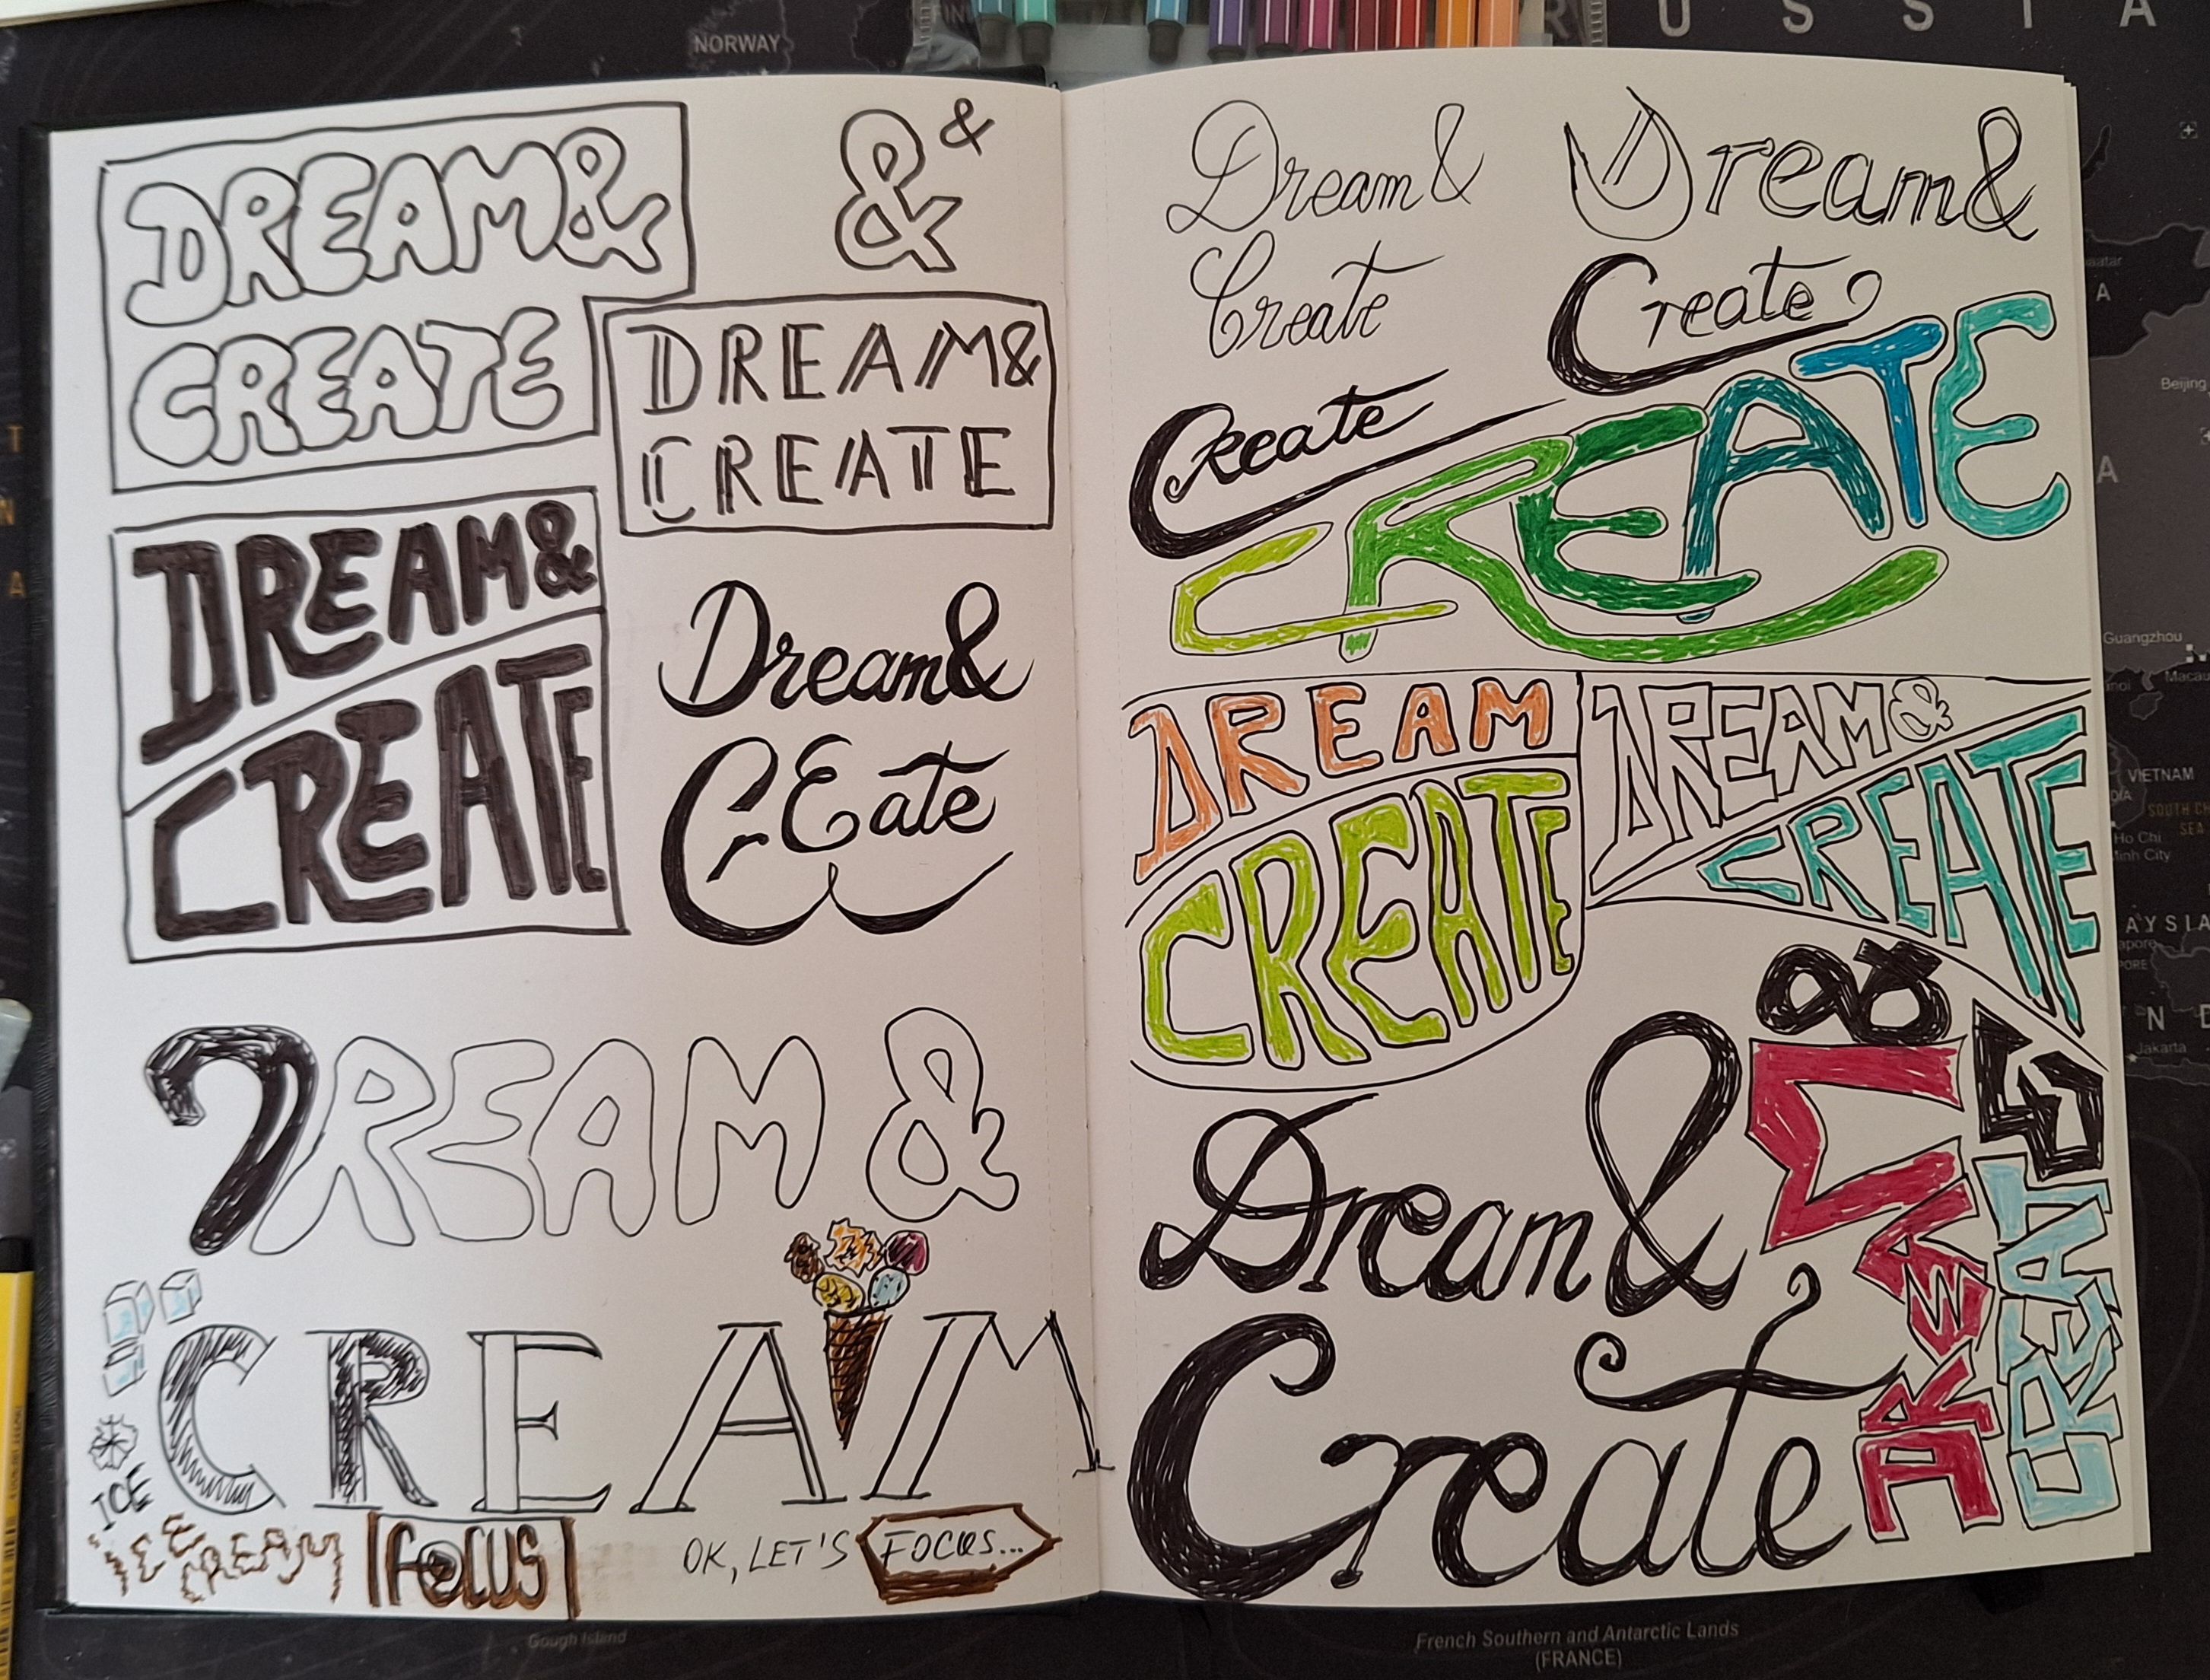 NORWAY
RUSSIA
DREAM&
CREATE
& &
DREAM&
CREATE
DREAM&
CREATE
Dream&
CrEate
DREAM &
CREAM
ICE
ICE
CREAM
FOCUS
OK, LET'S FOCUS...
Dream&
Create
Dream&
Create
Create
CREATE
DREAM
CREATE
DREAM&
CREATE
Dream&
Create
DREAM &
CREATE
Beijing
Guangzhou
Macau
VIETNAM
SOUTH CH
SEA
Ho Chi
Minh City
AYSIA
Jakarta
Gough Island
French Southern and Antarctic Lands
(FRANCE)